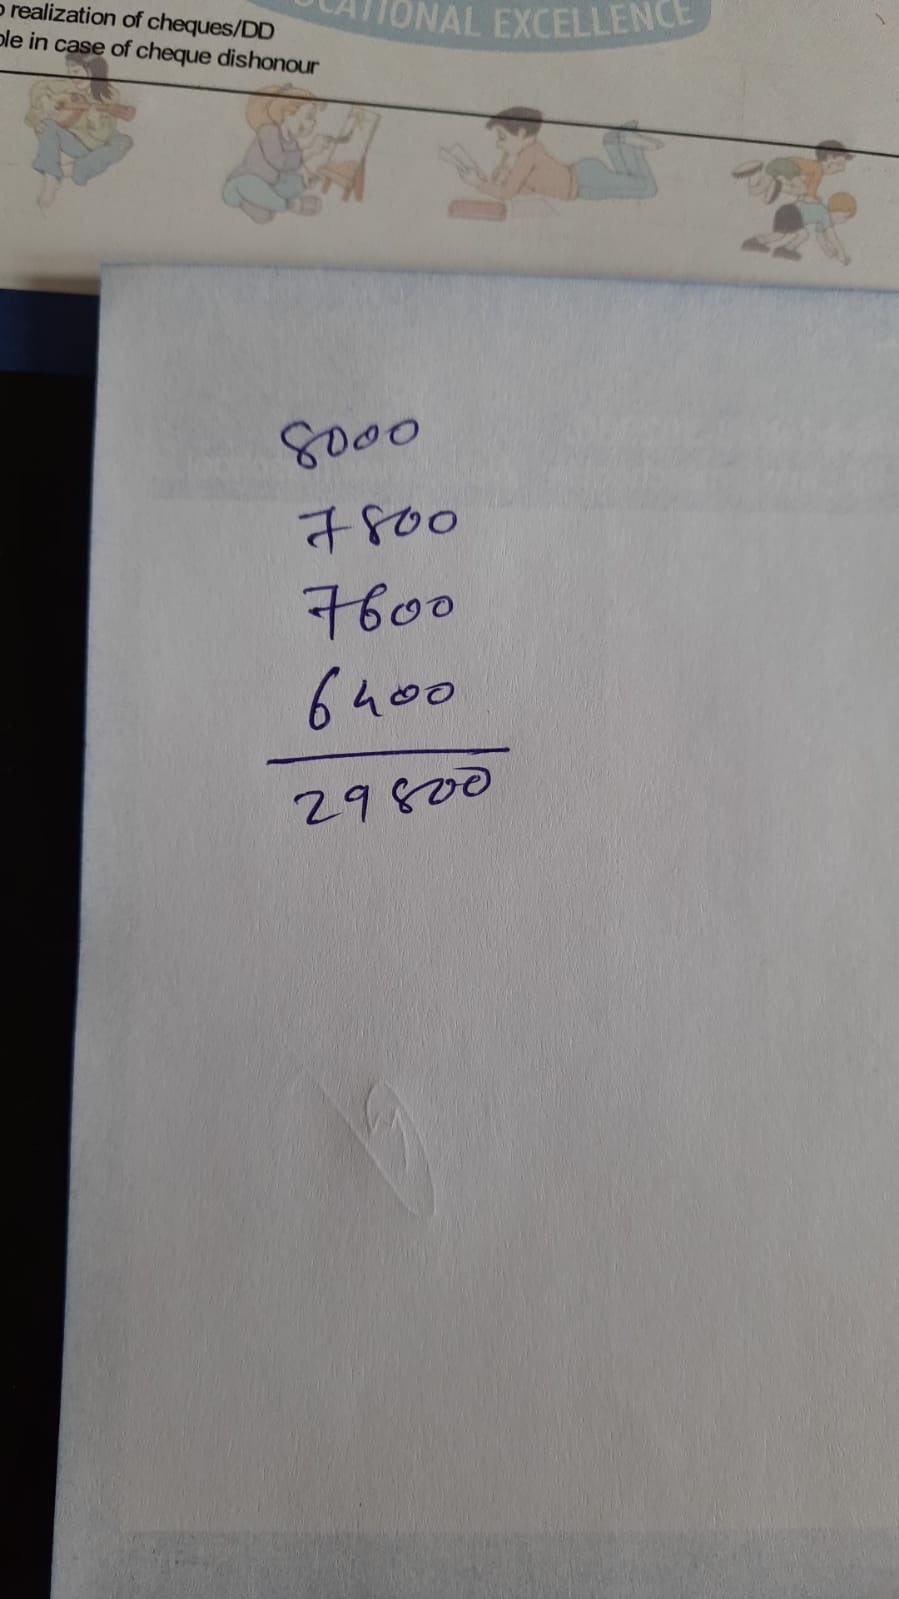 realization of cheques/DD
in case of cheque dishonour
EXCELLENCE
8000
7800
7600
6400
29800